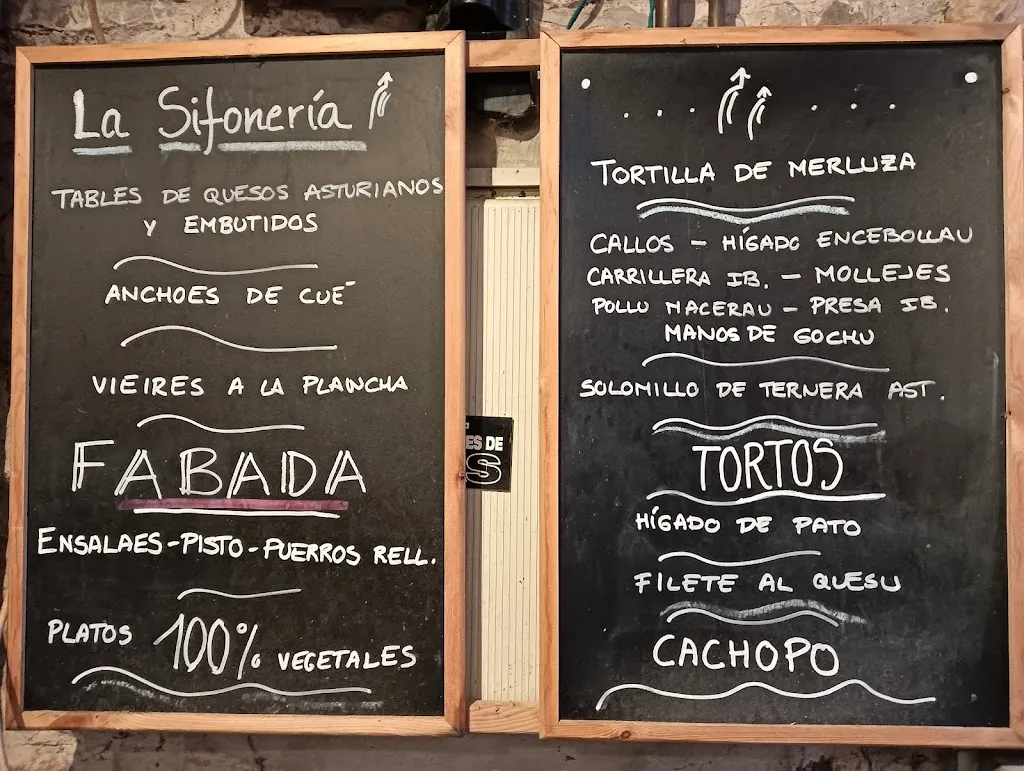 La Sifonería
TABLES DE QUESOS ASTURIANOS
Y EMBUTIDOS
ANCHOES DE CUÉ
VIEIRES A LA PLANCHA
FABADA
ENSALAES-PISTO-PUERROS RELL.
PLATOS 100% VEGETALES
ES DE
S
TORTILLA DE MERLUZA
CALLOS - HÍGADO ENCEBOLLAU
CARRILLERA IB. - MOLLEJES
POLLU MACERAU - PRESA IB.
MANOS DE GOCHU
SOLOMILLO DE TERNERA AST.
TORTOS
HÍGADO DE PATO
FILETE AL QUESU
CACHOPO